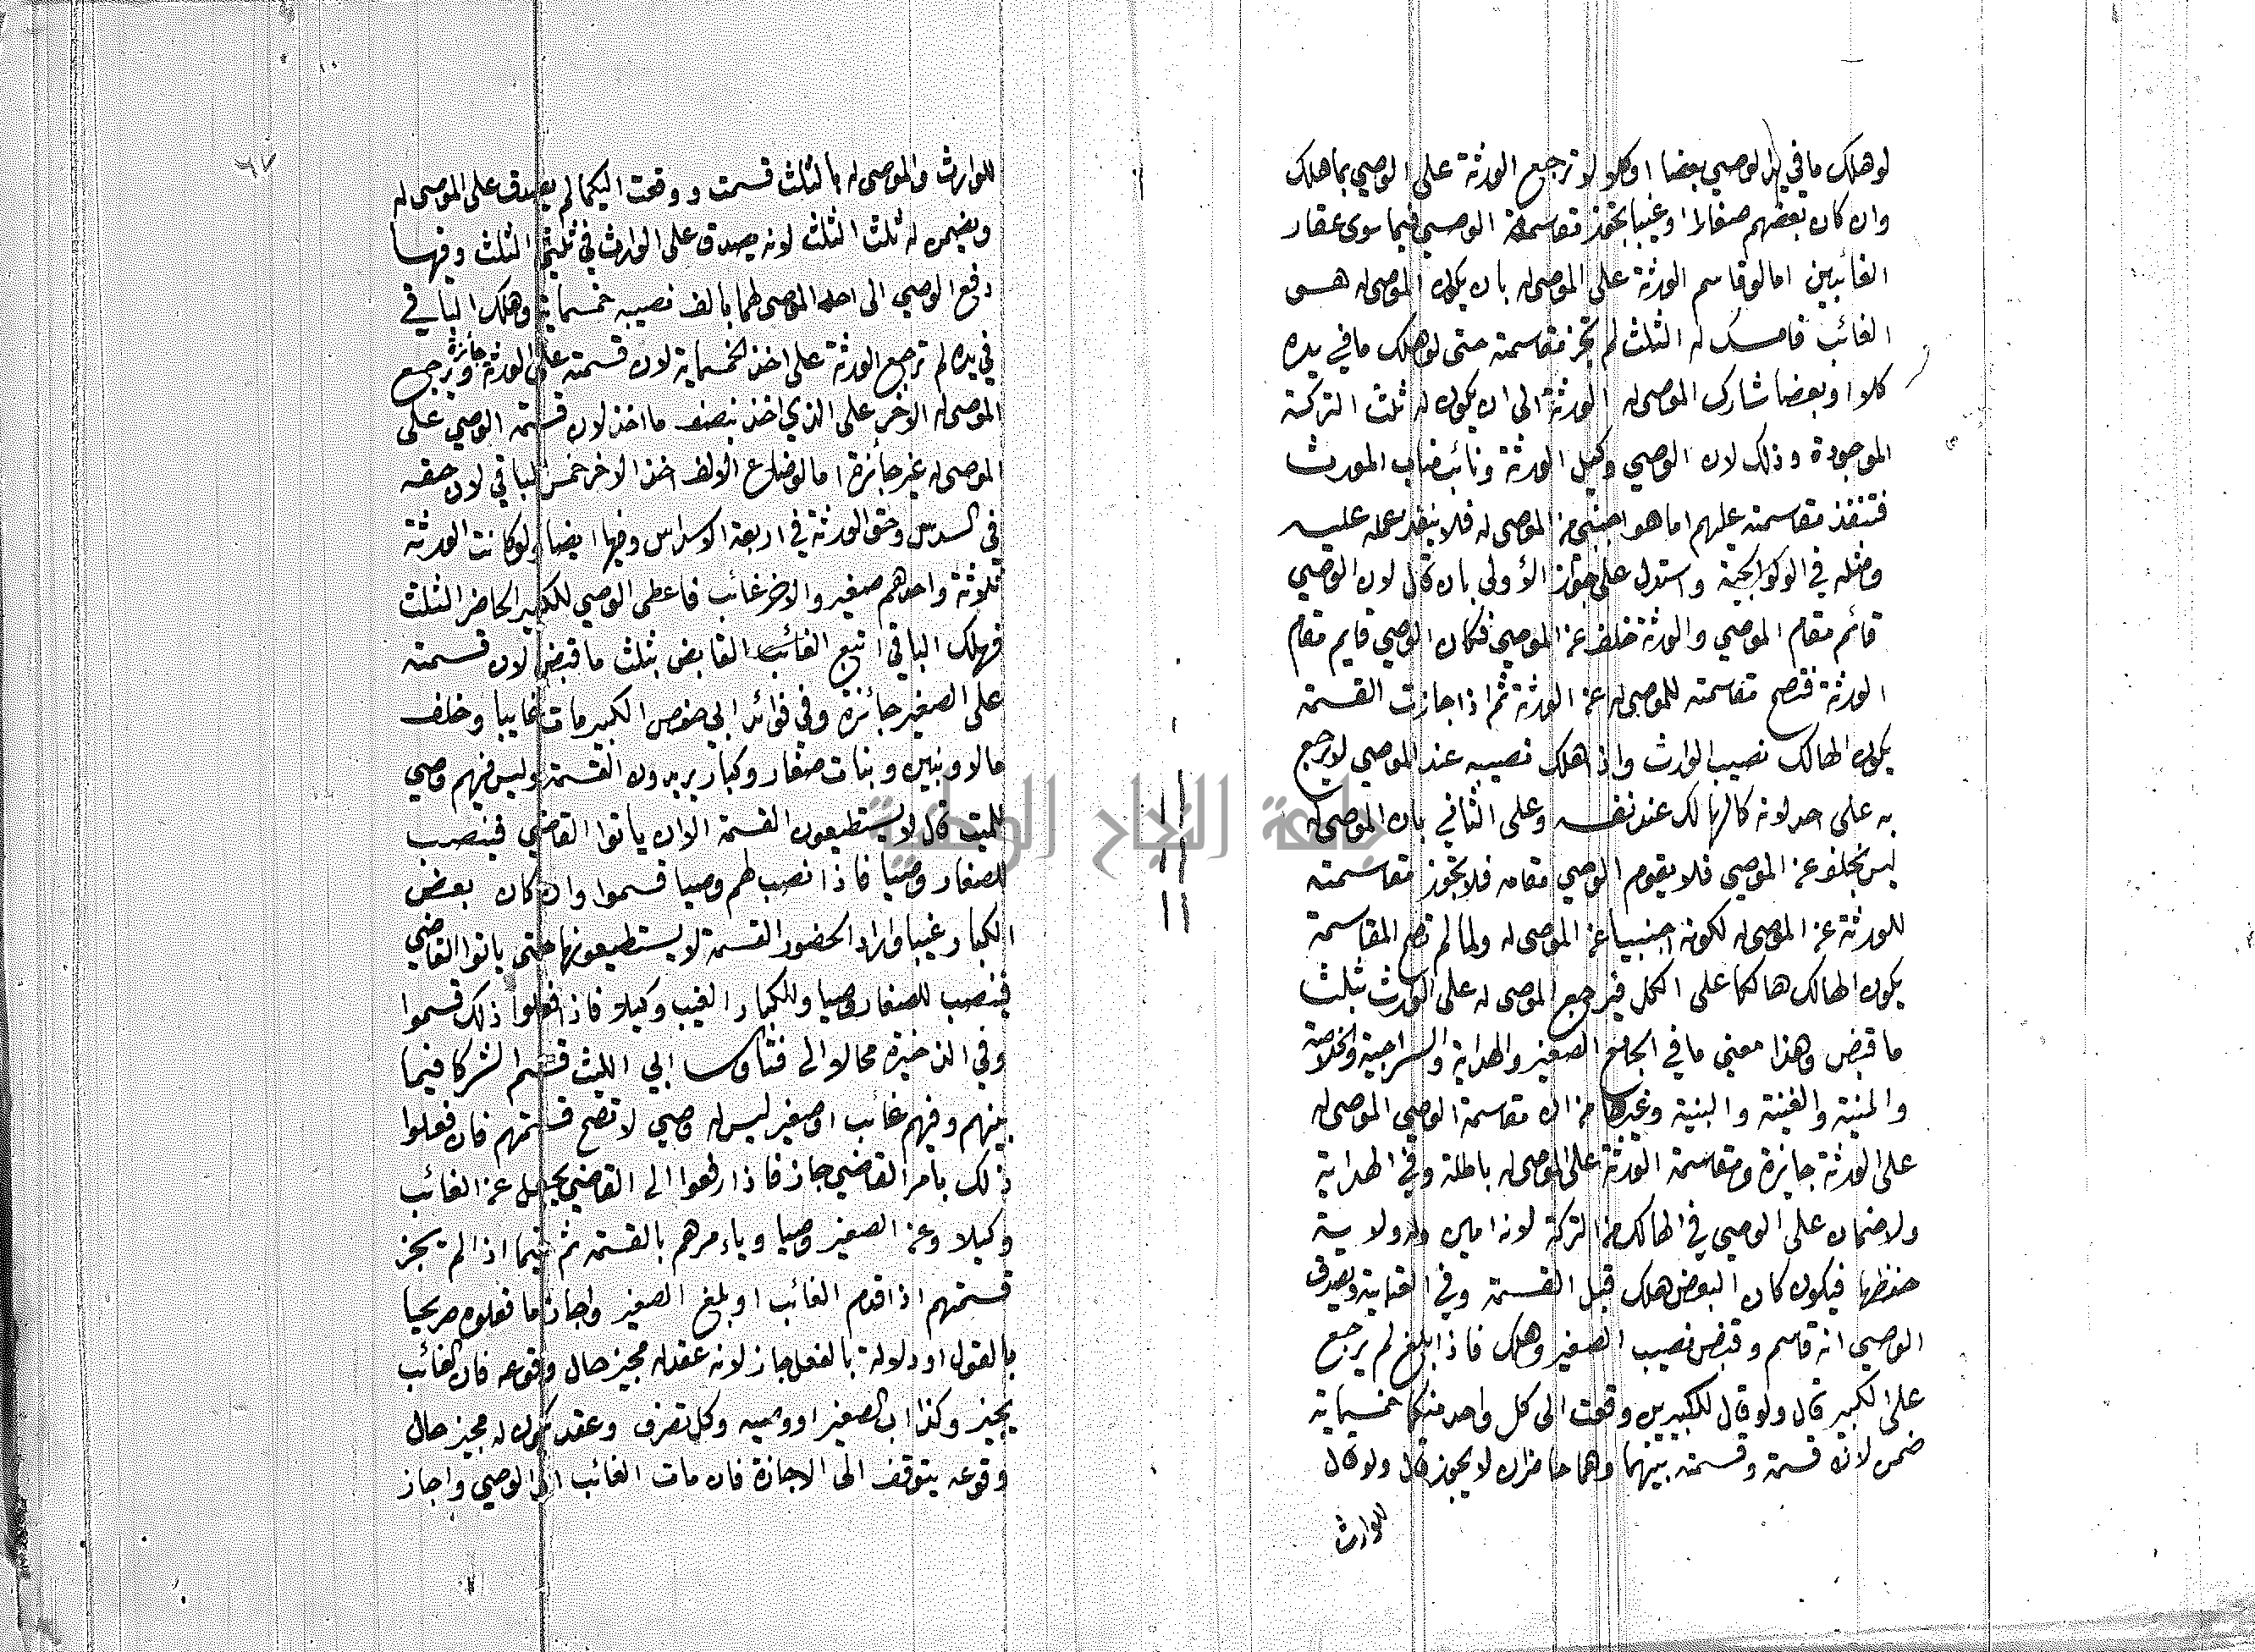 لو هلك ما في يد الوصي بعضا او كلا لا ترجع الورثة على الوصي بما هلك
وان كان بعضهم صغارا او غيبا تجوز مقاسمة الوصي فيما سوى عقار
الغائبين اما لو قاسم الورثة على الموصى له بان يكون الموصى له هو
الغائب فامسك له الثلث لم تجز مقاسمته حتى لو هلك ما في يده
كلا او بعضا شارك الموصى له الورثة الى ان يكون له ثلث التركة
الموجودة وذلك لان الوصي وكيل الورثة ونائب مناب المورث
فتنفذ مقاسمته عليهم اما هو اجنبي عن الموصى له فلا ينفذ عمله عليه
ومثله في الولوالجية واستدل على جواز الأولى بان قال لان الوصي
قائم مقام الموصي والورثة خلف عن الموصي فكان الوصي قايم مقام
الورثة فتصح مقاسمته للموصى له عن الورثة ثم اذا جازت القسمة
يكون الهالك نصيب الوارث واذا هلك نصيبه عند الموصي لا يرجع
به على احد لانه كالهالك عند نفسه وعلى الثاني بان الموصى له
ليس بخلف عن الموصي فلا يقوم الوصي مقامه فلا يجوز مقاسمته
للورثة عن الموصى له لكونه اجنبيا عن الموصى له ولما لم تصح المقاسمة
يكون الهالك هالكا على الكل فيرجع الموصى له على الوارث بثلث
ما قبض وهذا معنى ما في الجامع الصغير والهداية والسراجية والخلاصة
والمنية والغنية والبنية وغيرها من ان مقاسمة الوصي الموصى له
على الورثة جايزة ومقاسمة الورثة على الموصى له باطلة وفي الهداية
ولا ضمان على الوصي في الهالك من التركة لانه امين وله ولاية
حفظها فيكون كان البعض هلك قبل القسمة وفي العتابية ويصدق
الوصي انه قاسم وقبض نصيب الصغير وهلك فاذا بلغ لم يرجع
على الكبير قال ولو قال للكبيرين وقعت الى كل واحد منكما خمسماية
ضمن لانه قسمة وقسمته بينهما وهما حاضران لا يجوز قال ولو قال
للوارث
٦٧
للوارث والموصى له بالثلث قسمت ووقعت اليكما لم يصدق على الموصى له
ويضمن له ثلث الثلث لانه يصدق على الوارث في ثلثي الثلث وفيها
دفع الوصي الى احد الموصى لهما بالف نصيبه خمسماية وهلك الباقي
في يده لم ترجع الورثة على اخذ الخمسماية لان قسمته على الورثة جائزة ويرجع
الموصى له الاخر على الذي اخذ بنصف ما اخذ لان قسمة الوصي على
الموصى له غير جائزة اما لو ضاع الالف اخذ الاخر خمس الباقي لان حقه
في السدس وحق الورثة في اربعة الاسداس وفيها ايضا ولو كانت الورثة
ثلاثة واحدهم صغير والاخر غائب فاعطى الوصي للكبير الحاضر الثلث
فهلك الباقي اتبع الغائب القابض بثلث ما قبض لان قسمته
على الصغير جائزة وفي فوائد ابي حفص الكبير مات غايبا وخلف
مالا وبنين وبنات صغار وكبار يريدون القسمة وليس فيهم وصي
للميت قال لا يستطيعون القسمة الا ان ياتوا القاضي فينصب
للصغار وصيا فاذا نصب لهم وصيا قسموا وان كان بعض
الكبار غيبا واراد الحضور القسمة لا يستطيعونها حتى ياتوا القاضي
فينصب للصغار وصيا وللكبار الغيب وكيلا فاذا فعلوا ذلك قسموا
وفي الذخيرة محالا الى فتاوى ابي الليث قسم الشركا فيما
بينهم وفيهم غائب او صغير ليس له وصي لا تصح قسمتهم فان فعلوا
ذلك بامر القاضي جاز فاذا رفعوا الى القاضي يجعل عن الغائب
وكيلا وعن الصغير وصيا وياءمرهم بالقسمة ثم فيما اذا لم تجز
قسمتهم اذا قدم الغائب او بلغ الصغير واجاز ما فعلوه صريحا
بالقول او دلالة بالفعل جاز لانه عقد له مجيز حال وقوعه فان الغائب
يجيز وكذا اب الصغير او وصيه وكل تصرف وعقد يكون له مجيز حال
وقوعه يتوقف الى الاجازة فان مات الغائب او الوصي واجاز
جامعة النجاح الوطنية